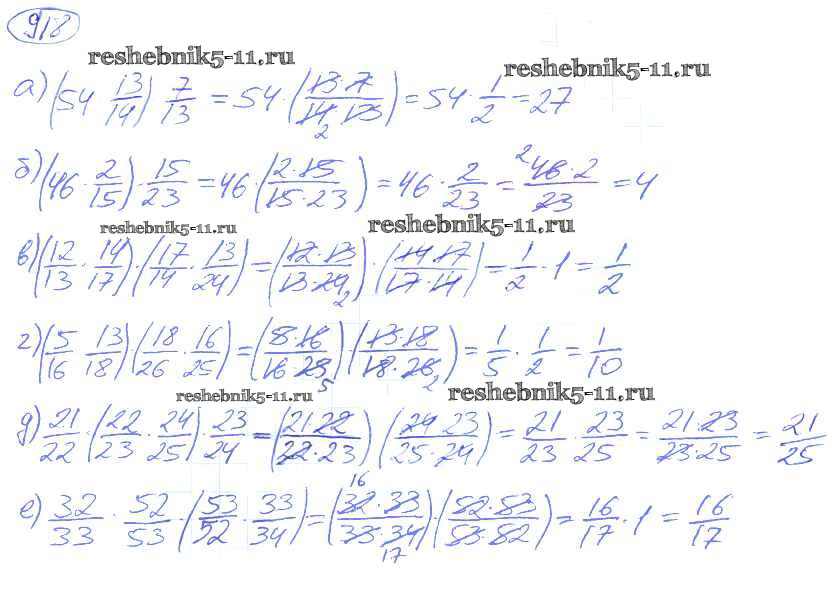 918
reshebnik5-11.ru
reshebnik5-11.ru
а) (54 · 13/14) · 7/13 = 54 · (13·7 / 14·13) = 54 · 1/2 = 27
2
б) (46 · 2/15) · 15/23 = 46 · (2·15 / 15·23) = 46 · 2/23 = 46·2 / 23 = 4
2
reshebnik5-11.ru
reshebnik5-11.ru
в) (12/13 · 14/17) · (17/14 · 13/24) = (12·13 / 13·24) · (14·17 / 17·14) = 1/2 · 1 = 1/2
2
г) (5/16 · 13/18) (18/26 · 16/25) = (5·16 / 16·25) · (13·18 / 18·26) = 1/5 · 1/2 = 1/10
5 2
reshebnik5-11.ru
reshebnik5-11.ru
д) 21/22 · (22/23 · 24/25) · 23/24 = (21·22 / 22·23) (24·23 / 25·24) = 21/23 · 23/25 = 21·23 / 23·25 = 21/25
16
е) 32/33 · 52/53 · (53/52 · 33/34) = (32·33 / 33·34) · (52·53 / 53·52) = 16/17 · 1 = 16/17
17